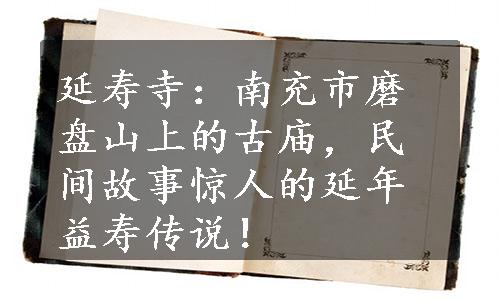 延寿寺：南充市磨
盘山上的古庙，民
间故事惊人的延年
益寿传说！